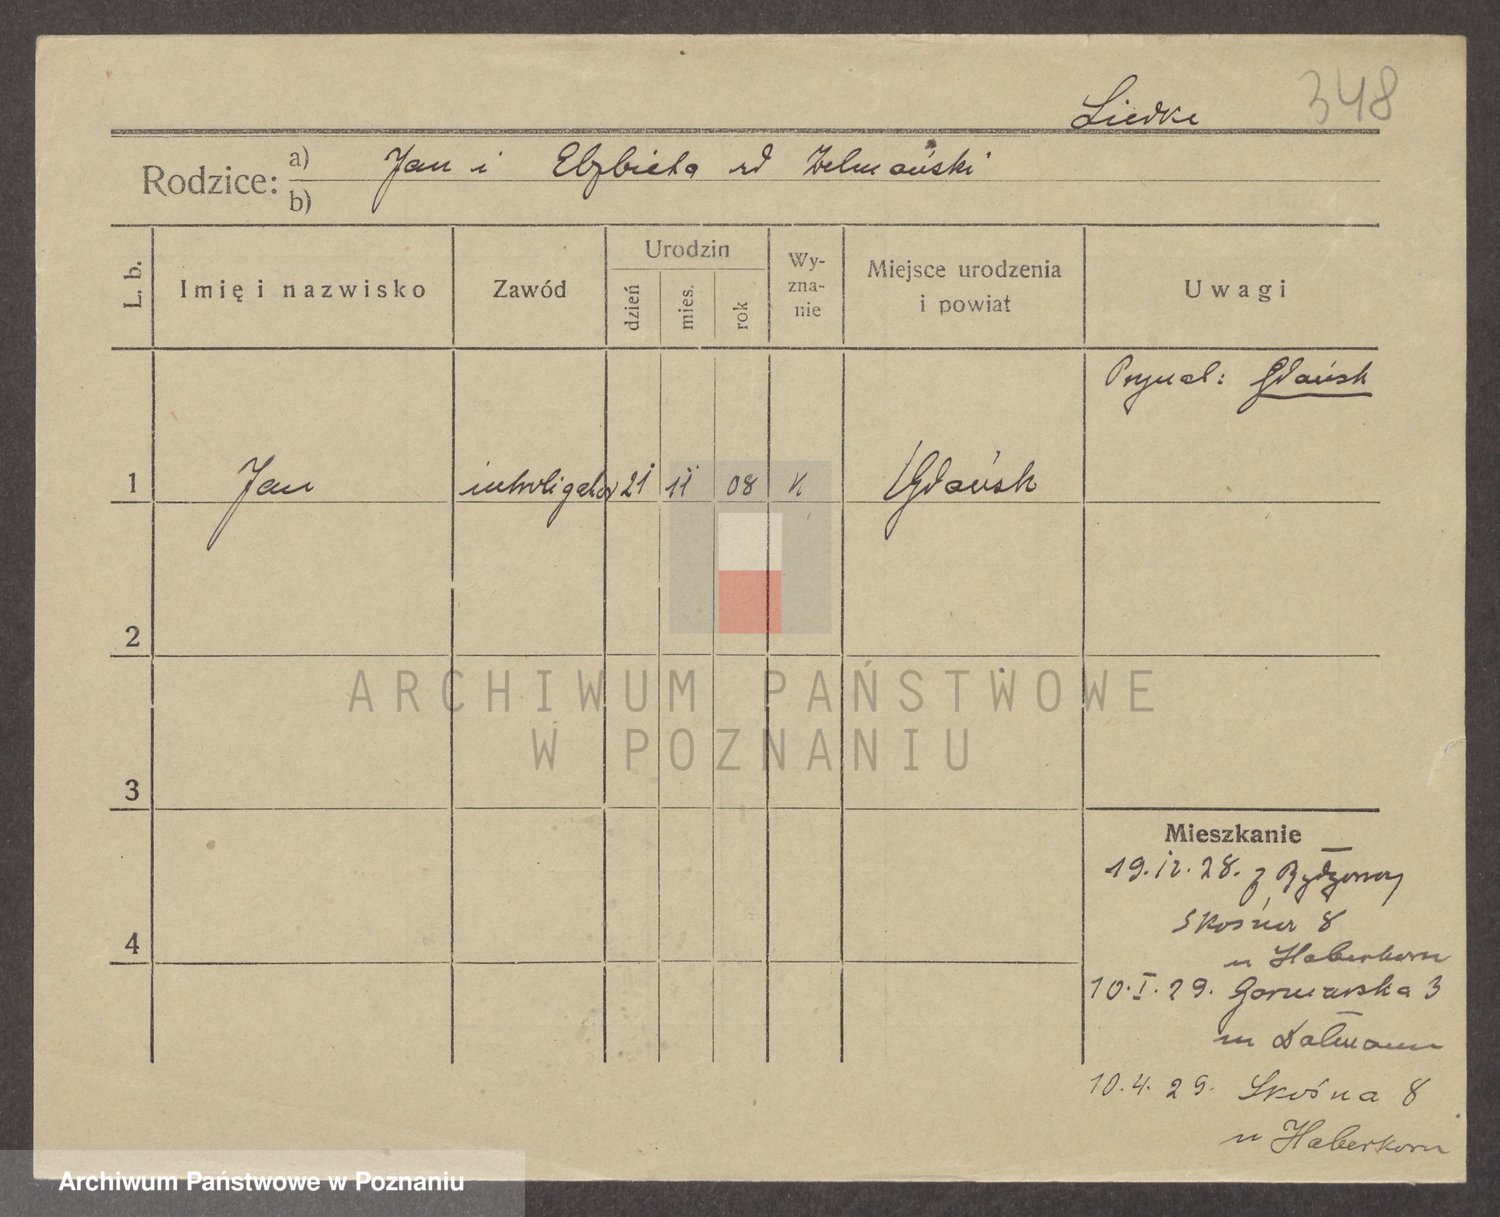 348
Liedke
Rodzice: a) Jan i Elżbieta zd
b)
L. b.
Imię i nazwisko
Zawód
Urodzin
dzień
mies.
rok
Wy-
zna-
nie
Miejsce urodzenia
i powiat
Uwagi
Przynal: Gdańsk
1 Jan introligator 21 11 08 K Gdańsk
2
3
4
Mieszkanie
19.12.28. z Bydgoszczy
Skośna 8
u Haberkorn
10.I.29. Garncarska 3
m
10.4.29. Skośna 8
u Haberkorn
ARCHIWUM PAŃSTWOWE
W POZNANIU
Archiwum Państwowe w Poznaniu